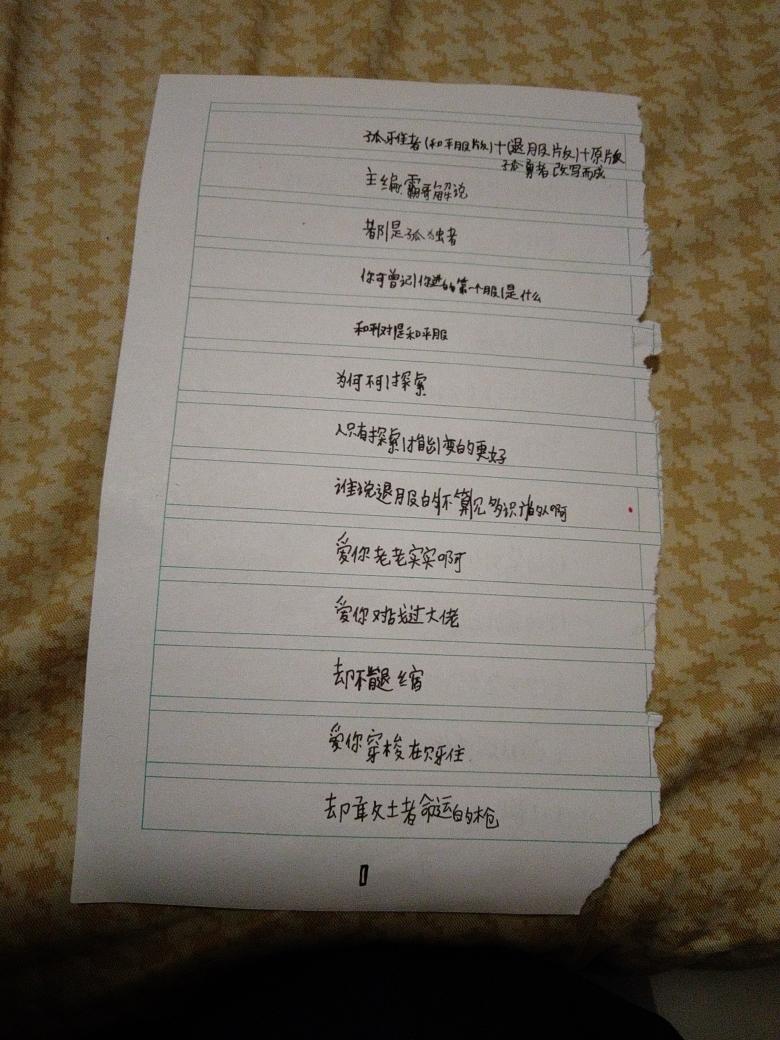 孤牙住者(和平服版)+(退服版)+原版
孤勇者改写而成
主编:霸哥解说
都是孤独者
你可曾记你进的第一个服是什么
和平对是和平服
为何不探索
人只有探索才能变的更好
谁说退服的不算见多识
爱你老老实实啊
爱你对战过大佬
却不曾退缩
爱你穿梭在牙住
却敢堵命运的枪
1